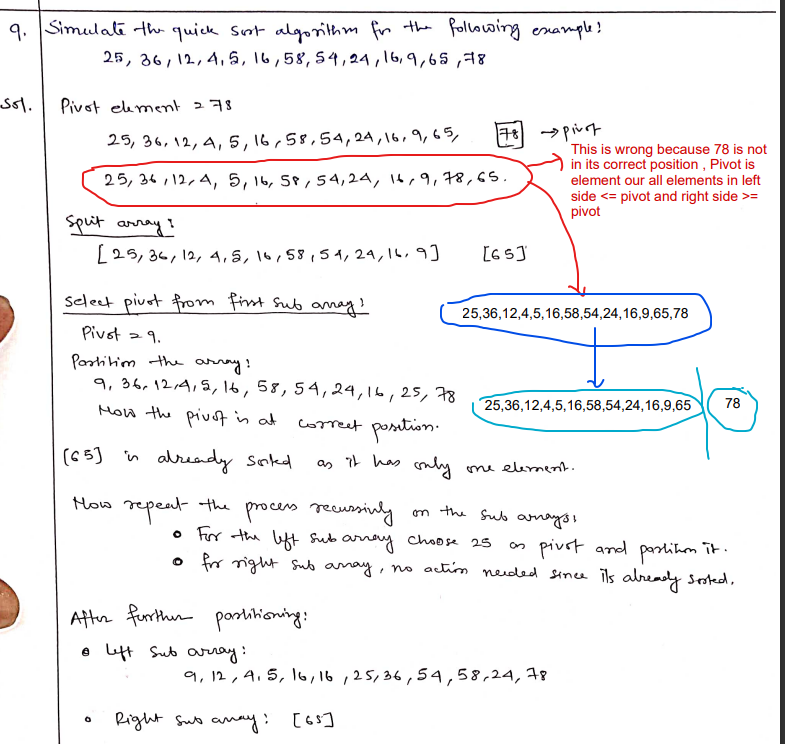 9. Simulate the quick sort algorithm for the following example:
25, 36, 12, 4, 5, 16, 58, 54, 24, 16, 9, 65, 78
Sol. Pivot element = 78
25, 36, 12, 4, 5, 16, 58, 54, 24, 16, 9, 65, 78 → pivot
This is wrong because 78 is not
in its correct position , Pivot is
element our all elements in left
side <= pivot and right side >=
pivot
25, 36, 12, 4, 5, 16, 58, 54, 24, 16, 9, 78, 65.
Split array:
[25, 36, 12, 4, 5, 16, 58, 54, 24, 16, 9] [65]
Select pivot from first sub array:
25,36,12,4,5,16,58,54,24,16,9,65,78
Pivot = 9.
Partition the array:
9, 36, 12, 4, 5, 16, 58, 54, 24, 16, 25, 78
25,36,12,4,5,16,58,54,24,16,9,65 78
Now the pivot is at correct position.
[65] is already sorted as it has only one element.
Now repeat the process recursively on the sub arrays:
• For the left sub array choose 25 as pivot and partition it.
• for right sub array, no action needed since its already sorted.
After further partitioning:
• Left sub array:
9, 12, 4, 5, 16, 16, 25, 36, 54, 58, 24, 78
• Right sub array: [65]